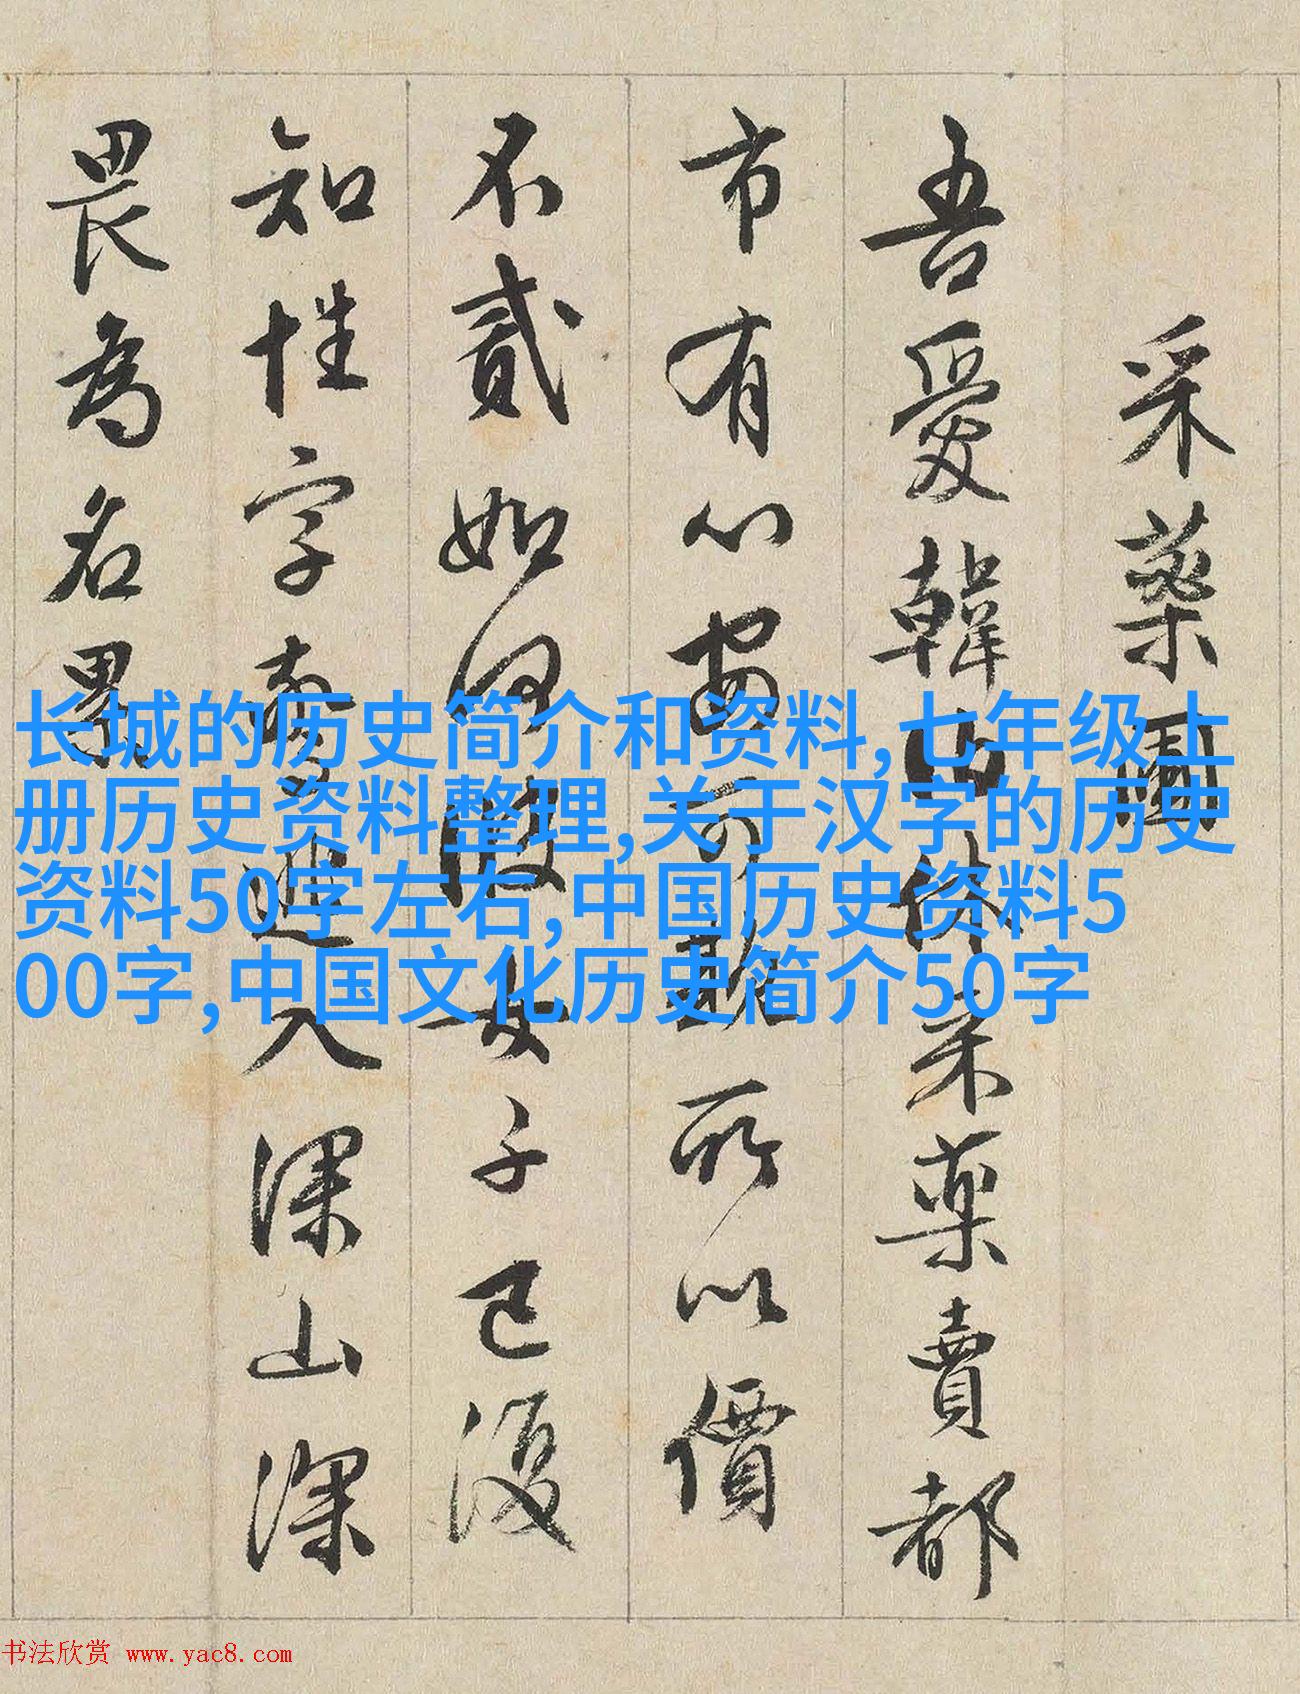 采藥圃
吾愛韓伯休采藥賣都
市有心安可欺所以價
不貳如何彼女子已復
知姓字驚逃入深山深
畏為名累
长城的历史简介和资料,七年级上
册历史资料整理,关于汉字的历史
资料50字左右,中国历史资料5
00字,中国文化历史简介50字
书法欣赏 www.yac8.com